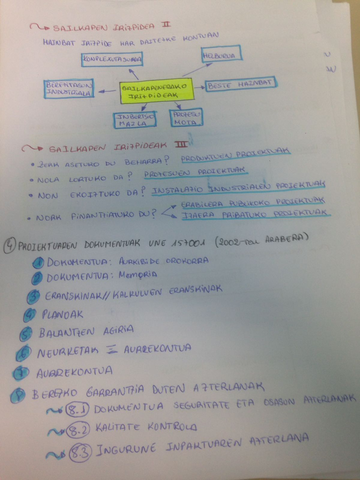 SAILKAPEN IRIZPIDEA II
HAINBAT IRIZPIDE HAR DAITEZKE KONTUAN
KONPLEXUTASUNA
HELBURUA
BERRIKUNTZAREN
SAILKAPENERAKO
IRIZPIDEAK
BESTE HAINBAT
INBERTSIO
MAILA
PROIEKTU
MOTA
SAILKAPEN IRIZPIDEAK III
• ZERK ASETUKO DU BEHARRA? PRODUKTUEN PROIEKTUAK
• NOLA LORTUKO DA? PROZESUEN PROIEKTUAK
• NON EKOIZTUKO DA? INSTALAZIO INDUSTRIALEN PROIEKTUAK
• NORK FINANTZIATUKO DU? ERABILERA PUBLIKOKO PROIEKTUAK
IZAERA PRIBATUKO PROIEKTUAK
④ PROIEKTUAREN DOKUMENTUAK UNE 157001 (2002-REN ARABERA)
1 DOKUMENTUA: AURKIBIDE OROKORRA
2 DOKUMENTUA: MEMORIA
3 ERANSKINAK// KALKULUEN ERANSKINAK
4 PLANOAK
5 BALDINTZEN AGIRIA
6 NEURKETAK I AURREKONTUA
7 AURREKONTUA
8 BEREZKO GARRANTZIA DUTEN AZTERLANAK
8.1 DOKUMENTUA SEGURTATE ETA OSASUN AZTERLANAK
8.2 KALITATE KONTROLA
8.3 INGURUNE INPAKTUAREN AZTERLANA